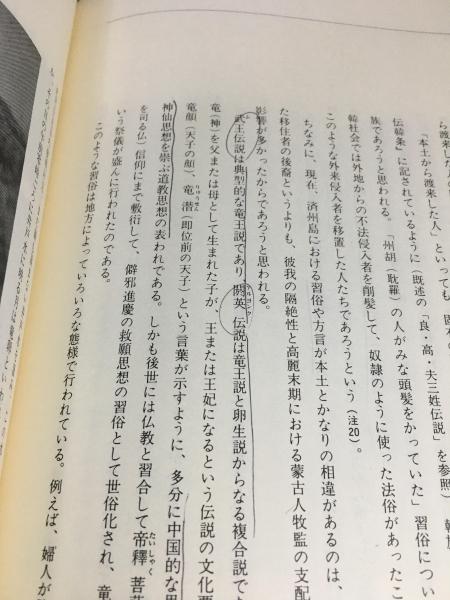 ら渡来した人」といっても、
「本土から渡来した人」
伝韓条」に記されているように(既述の「良・高・夫三姓伝説」を参照)
族であろうと思われる。「州胡(耽羅)の人がみな頭髪をかっていた」習俗につい
韓社会では外地からの不法侵入者を削髪して、奴隷のように使った法俗があったこ
このような外来侵入者を移置した人たちであろうという(注20)。
ちなみに、現在、済州島における習俗や方言が本土とかなりの相違があるのは、
た移住者の後裔というよりも、彼我の隔絶性と高麗末期における蒙古人牧監の支配
影響が多かったからであろうと思われる。
武王伝説は典型的な竜王説であり、閼英伝説は竜王説と卵生説からなる複合説で
竜(神)を父または母として生まれた子が、王または王妃になるという伝説の文化要
竜顔(天子の顔)、竜潜(即位前の天子)という言葉が示すように、多分に中国的な思
神仙思想を崇ぶ道教思想の表われである。しかも後世には仏教と習合して帝釋菩薩
を司る仏)信仰にまで敷衍して、僻邪進慶の救願思想の習俗として世俗化され、竜
いう祭儀が盛んに行われたのである。
このような習俗は地方によっていろいろな態様で行われている。例えば、婦人が